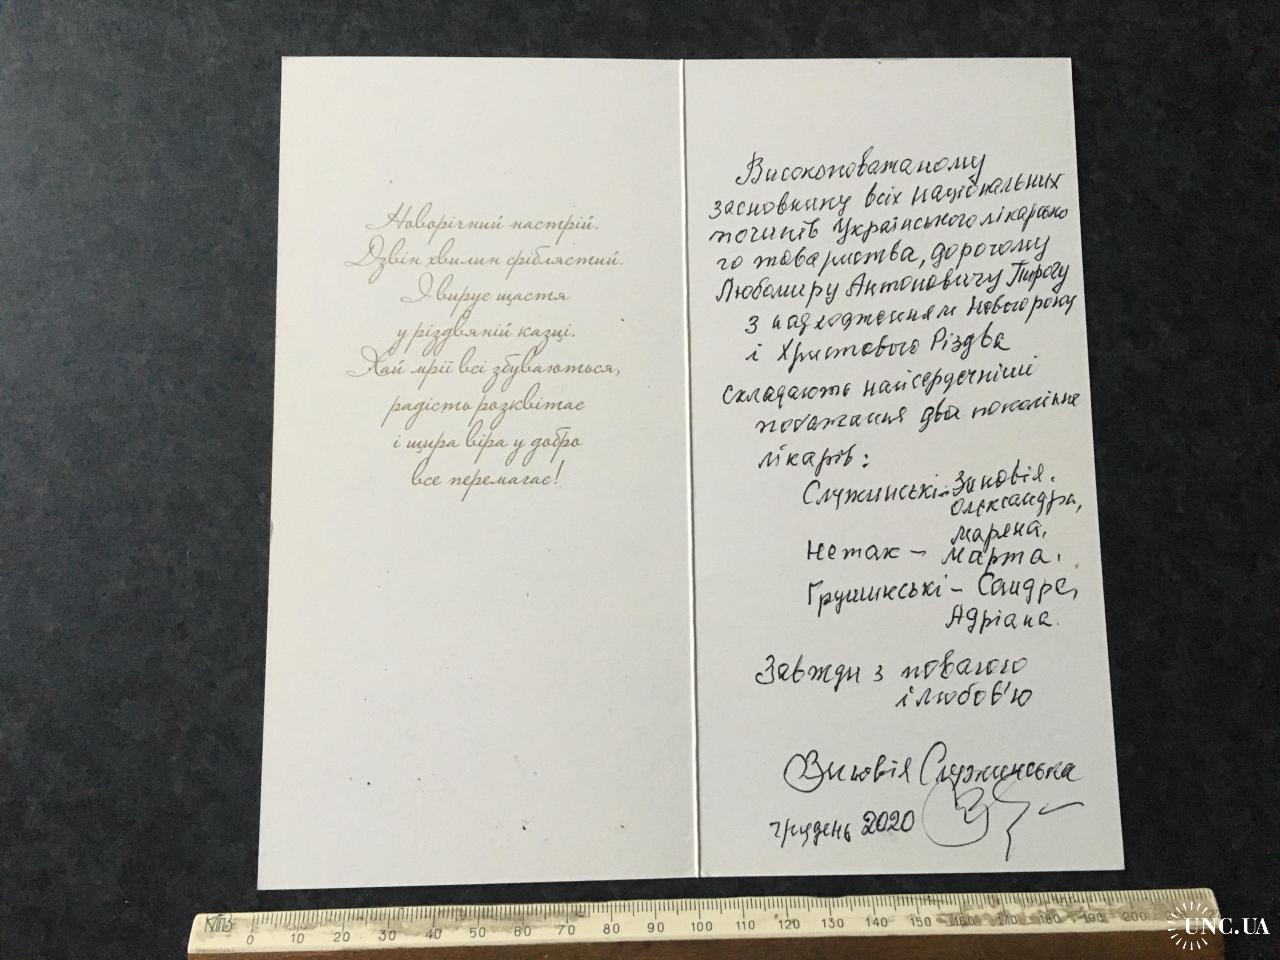 Новорічний настрій.
Дзвін хвилин фіблястий.
І вирує щастя
у різдвяній казці.
Хай мрії всі збуваються,
радість розквітає
і щира віра у добро
все перемагає!
Високоповажаному
засновнику всіх національних
починів Українського лікарсько
го товариства, дорогому
Любомиру Антоновичу Пирогу
з надходженням Нового року
і Христового Різдва
складають найсердечніші
побажання два покоління
лікарів:
Служинські - Зиновія.
Олександра,
Марена,
Нетак - Марта.
Грушинські - Сандра,
Адріана.
Завжди з повагою
і любов'ю
Зиновія Служинська
грудень 2020
0 10 20 30 40 50 60 70 80 90 100 110 120 130 140 150 160 170 180 190 200
UNC.UA